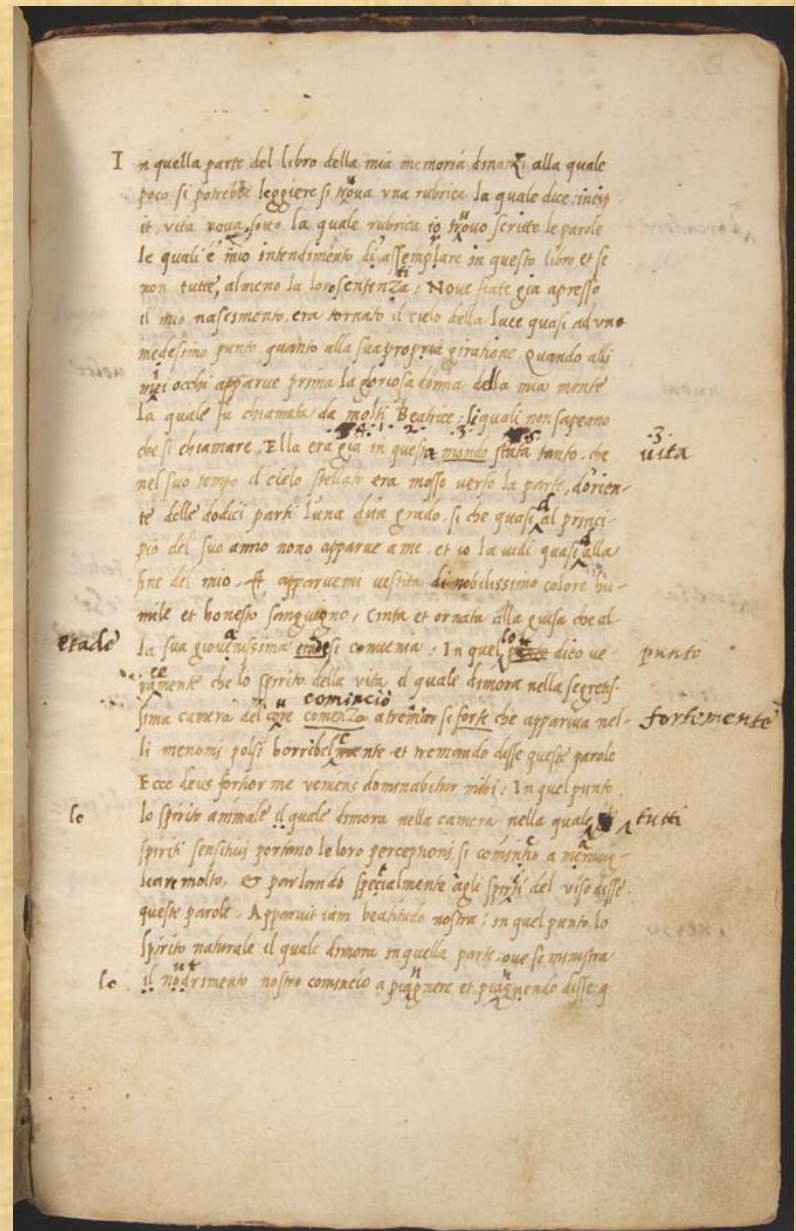 In quella parte del libro della mia memoria dinanzi alla quale
poco si potrebbe leggiere si trova una rubrica la quale dice, incip
it, vita nova, sotto la quale rubrica io truovo scritte le parole
le quali é mio intendimento di assemplare in questo libro et se
non tutte, almeno la loro sententia: Nove fiate gia apresso
il mio nascimento, era tornato il cielo della luce quasi ad uno
medesimo punto, quanto alla sua propria giratione, quando alli
miei occhi apparve prima la gloriosa donna della mia mente
la quale fu chiamata da molti Beatrice; li quali non sapeano
che si chiamare. Ella era gia in questa mondo stata tanto, che
3
vita
nel suo tempo il cielo stellato era mosso verso la parte, dorien-
te delle dodici parti l'una d'un grado, si che quasi dal princi-
pio del suo anno nono apparve a me, et io la vidi quasi dalla
fine del mio, et apparvemi vestita di nobilissimo colore hu-
mile et honesto sanguigno, cinta et ornata alla guisa che al-
etade
la sua giovanissima etade si convenia: In quel punto dico ve-
punto
ramente che lo spirito della vita il quale dimora nella segretis-
cominciò
sima camera del core comenzò a tremar si forte che appariva nel-
fortemente
li menomi polsi horribelmente et tremando disse queste parole
Ecce deus fortior me veniens dominabitur mihi: In quel punto
lo
lo spirito animale il quale dimora nella camera nella quale
tutti
spiriti sensitivi portano le loro perceptioni, si comintio a maravig-
liare molto, & parlando spetialmente agli spiriti del viso disse
queste parole, Apparuit iam beatitudo nostra; in quel punto lo
spirito naturale il quale dimora in quella parte, ove se ministra
lo
il nodrimento nostro comincio a piagnere et piagnendo disse q